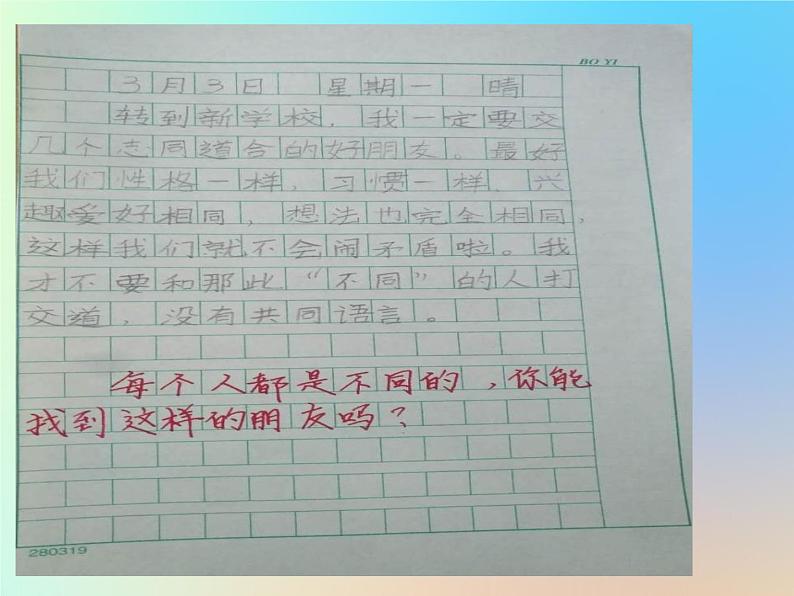 BO YI
3月3日 星期一 晴
转到新学校，我一定要交
几个志同道合的好朋友。最好
我们性格一样，习惯一样，兴
趣爱好相同，想法也完全相同，
这样我们就不会闹矛盾啦。我
才不要和那些“不同”的人打
交道，没有共同语言。
每个人都是不同的，你能
找到这样的朋友吗？
280319